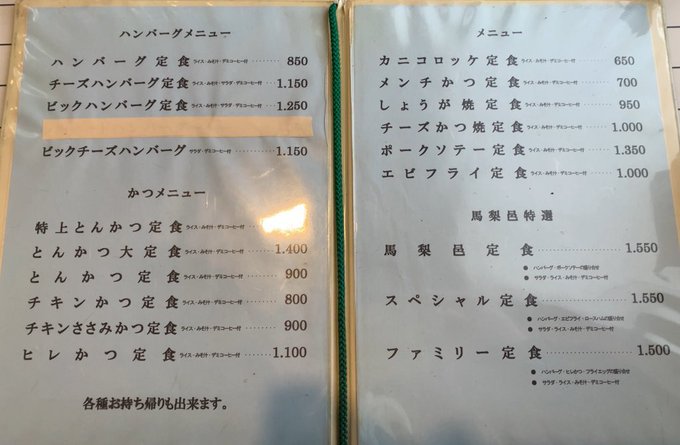 ハンバーグメニュー
ハンバーグ定食 ライス・みそ汁・デミコーヒー付 850
チーズハンバーグ定食 ライス・みそ汁・サラダ・デミコーヒー付 1.150
ビックハンバーグ定食 ライス・みそ汁・サラダ・デミコーヒー付 1.250
ビックチーズハンバーグ サラダ・デミコーヒー付 1.150
かつメニュー
特上とんかつ定食 ライス・みそ汁・デミコーヒー付
とんかつ大定食 ライス・みそ汁・デミコーヒー付 1.400
とんかつ定食 ライス・みそ汁・デミコーヒー付 900
チキンかつ定食 ライス・みそ汁・デミコーヒー付 800
チキンささみかつ定食 ライス・みそ汁・デミコーヒー付 900
ヒレかつ定食 ライス・みそ汁・デミコーヒー付 1.100
各種お持ち帰りも出来ます。
メニュー
カニコロッケ定食 ライス・みそ汁・デミコーヒー付 650
メンチかつ定食 ライス・みそ汁・デミコーヒー付 700
しょうが焼定食 ライス・みそ汁・デミコーヒー付 950
チーズかつ焼定食 ライス・みそ汁・デミコーヒー付 1.000
ポークソテー定食 ライス・みそ汁・デミコーヒー付 1.350
エビフライ定食 ライス・みそ汁・デミコーヒー付 1.000
馬梨邑特選
馬梨邑定食 1.550
● ハンバーグ・ポークソテーの盛り合せ
● サラダ・ライス・みそ汁・デミコーヒー付
スペシャル定食 1.550
● ハンバーグ・エビフライ・ロースハムの盛り合せ
● サラダ・ライス・みそ汁・デミコーヒー付
ファミリー定食 1.500
● ハンバーグ・ヒレかつ・フライエッグの盛り合せ
● サラダ・ライス・みそ汁・デミコーヒー付